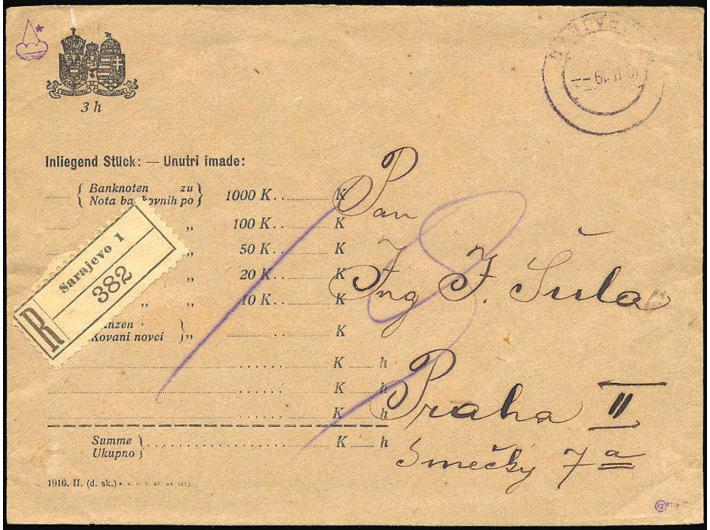 3 h
Inliegend Stück: — Unutri imade:
Banknoten zu
Nota bankovnih po 1000 K . . K
„ 100 K . . K
„ 50 K . . K
„ 20 K . . K
„ „ 10 K . . K
Kovani novci „ K
K h
K h
K h
Summe
Ukupno K h
1916. II. (d. sk.)
R
Sarajevo 1
382
Pan
Ing J. Šula
Praha II
Smečky 7a